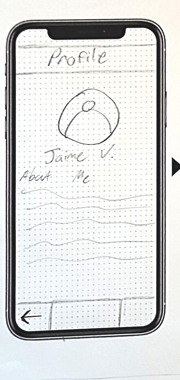 Profile
Jaime V.
About Me